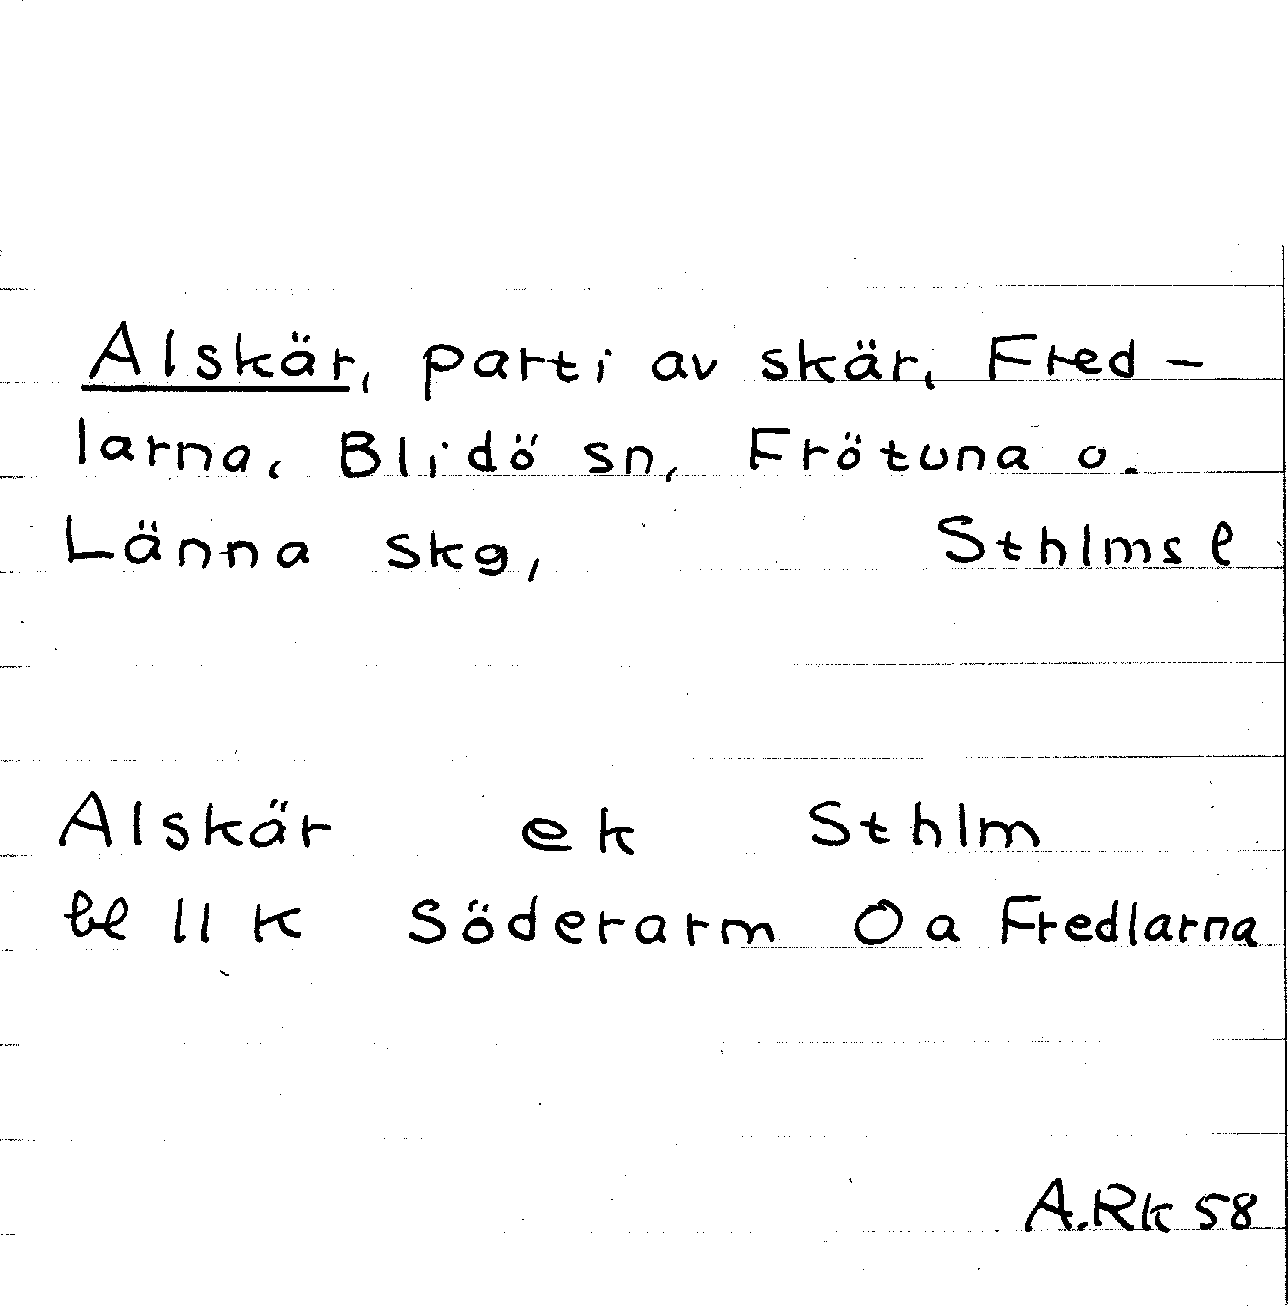 Alskär, parti av skär, Fred-
larna, Blidö sn, Frötuna o.
Länna skg, Sthlms l
Alskär ek Sthlm
bl 11 K Söderarm O a Fredlarna
A.Rk 58